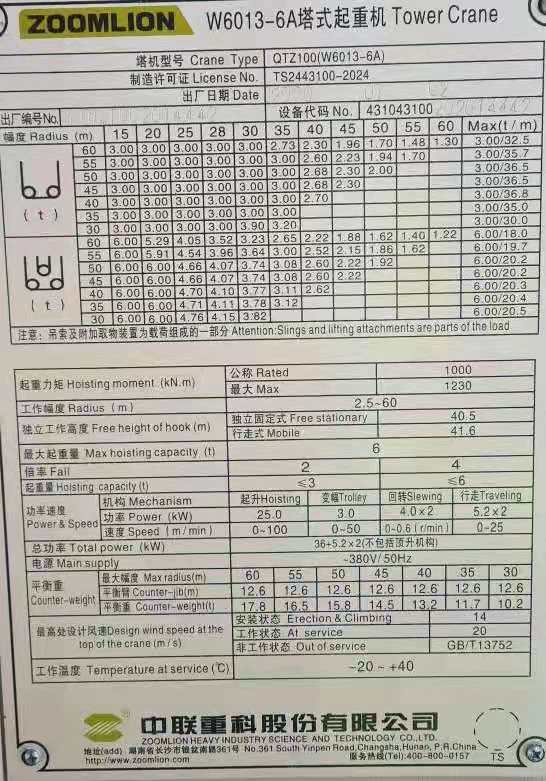 ZOOMLION W6013-6A塔式起重机 Tower Crane
塔机型号 Crane Type QTZ100(W6013-6A)
制造许可证 License No. TS2443100-2024
出厂日期 Date
出厂编号No. 设备代码 No. 431043100
幅度 Radius (m) 15 20 25 28 30 35 40 45 50 55 60 Max(t/m)
60 3.00 3.00 3.00 3.00 3.00 2.73 2.30 1.96 1.70 1.48 1.30 3.00/32.5
55 3.00 3.00 3.00 3.00 3.00 3.00 2.60 2.23 1.94 1.70 3.00/35.7
50 3.00 3.00 3.00 3.00 3.00 3.00 2.68 2.30 2.00 3.00/36.5
45 3.00 3.00 3.00 3.00 3.00 3.00 2.68 2.30 3.00/36.5
40 3.00 3.00 3.00 3.00 3.00 3.00 2.70 3.00/36.8
(t) 35 3.00 3.00 3.00 3.00 3.00 3.00 3.00/35.0
30 3.00 3.00 3.00 3.00 3.90 3.20 3.00/30.0
60 6.00 5.29 4.05 3.52 3.23 2.65 2.22 1.88 1.62 1.40 1.22 6.00/18.0
55 6.00 5.91 4.54 3.96 3.64 3.00 2.52 2.15 1.86 1.62 6.00/19.7
50 6.00 6.00 4.66 4.07 3.74 3.08 2.60 2.22 1.92 6.00/20.2
45 6.00 6.00 4.66 4.07 3.74 3.08 2.60 2.22 6.00/20.2
40 6.00 6.00 4.70 4.10 3.77 3.11 2.62 6.00/20.3
(t) 35 6.00 6.00 4.71 4.11 3.78 3.12 6.00/20.4
30 6.00 6.00 4.76 4.15 3.82 6.00/20.5
注意: 吊索及附加取物装置为载荷组成的一部分 Attention:Slings and lifting attachments are parts of the load
起重力矩 Hoisting moment (kN.m) 公称 Rated 1000
最大 Max 1230
工作幅度 Radius (m) 2.5~60
独立工作高度 Free height of hook (m) 独立固定式 Free stationary 40.5
行走式 Mobile 41.6
最大起重量 Max hoisting capacity (t) 6
倍率 Fall 2 4
起重量 Hoisting capacity (t) ≤3 ≤6
功率速度 Power & Speed 机构 Mechanism 起升Hoisting 变幅Trolley 回转Slewing 行走Traveling
功率 Power (kW) 25.0 3.0 4.0×2 5.2×2
速度 Speed (m/min) 0~100 0~50 0~0.6 (r/min) 0~25
总功率 Total power (kW) 36+5.2×2(不包括顶升机构)
电源 Main supply ~380V/ 50Hz
平衡重 Counter-weight 最大幅度 Max radius(m) 60 55 50 45 40 35 30
平衡臂 Counter-jib(m) 12.6 12.6 12.6 12.6 12.6 12.6 12.6
平衡重 Counter-weight(t) 17.8 16.5 15.8 14.5 13.2 11.7 10.2
最高处设计风速Design wind speed at the top of the crane (m/s) 安装状态 Erection & Climbing 14
工作状态 At service 20
非工作状态 Out of service GB/T13752
工作温度 Temperature at service (℃) -20 ~ +40
中联重科股份有限公司
ZOOMLION HEAVY INDUSTRY SCIENCE AND TECHNOLOGY CO.,LTD.
地址(add) 湖南省长沙市银盆南路361号 No.361 South Yinpen Road,Changsha,Hunan, P.R.China
http://www.zoomlion.com 服务热线(Tel):400-800-0157
TS